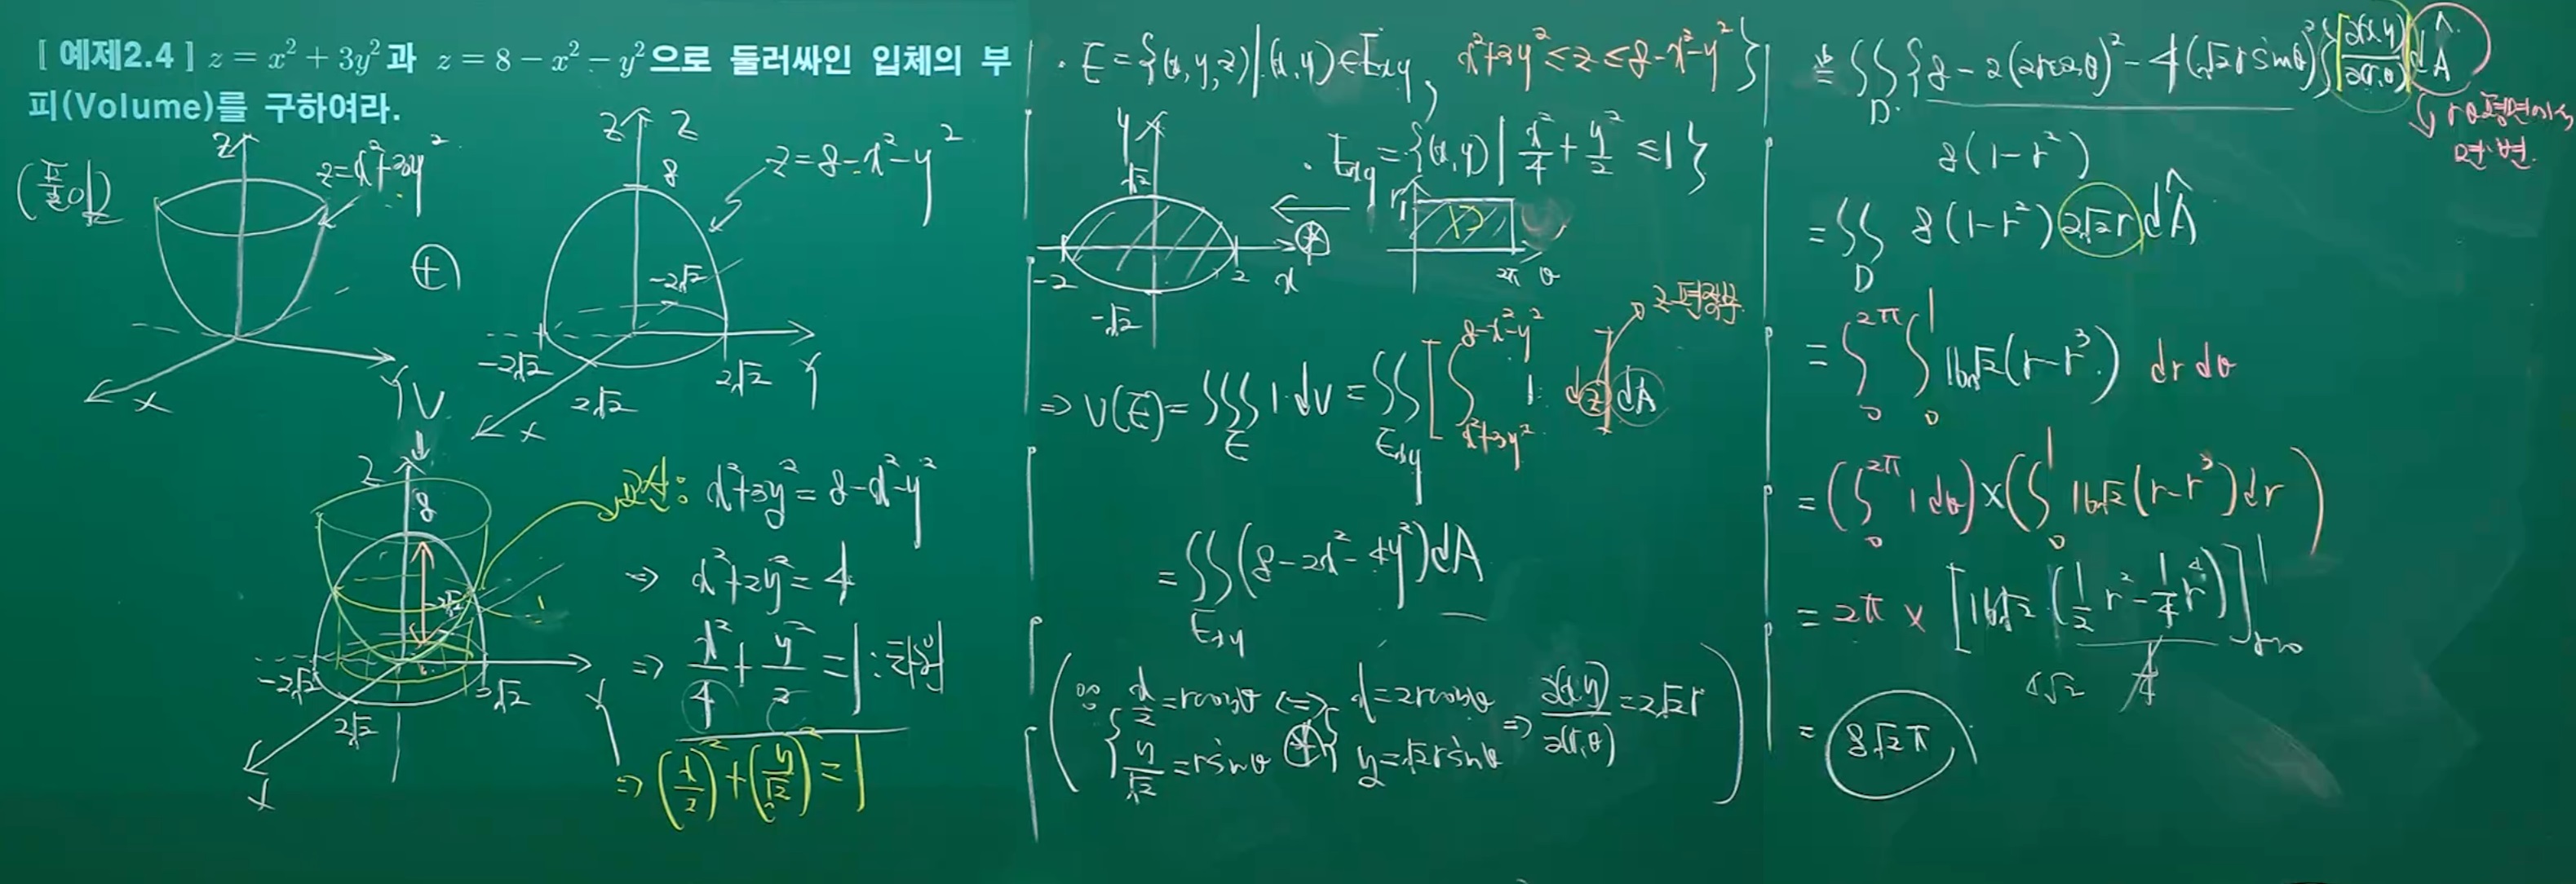 [ 예제2.4 ] z = x² + 3y²과 z = 8 − x² − y²으로 둘러싸인 입체의 부
피(Volume)를 구하여라.
(풀이)
z
z=x²+3y²
x
y
⊕
z
8
z=8-x²-y²
-2√2
-2√2
2√2
2√2
x
y
z
8
-2√2
-2√2
2√2
2√2
x
y
교선: x²+3y²=8-x²-y²
⇒ x²+2y²=4
⇒ x²/4 + y²/2 = 1 : 타원
⇒ (x/2)²+(y/√2)²=1
· E={(x,y,z)|(x,y)∈Exy, x²+3y²≤z≤8-x²-y²}
· Exy={(x,y)| x²/4 + y²/2 ≤1}
y
√2
-2
2
x
-√2
r
1
D
2π
θ
⇒ V(E)=∭_E 1·dV = ∬_Exy [∫_{x²+3y²}^{8-x²-y²} 1 dz] dA
= ∬_Exy (8-2x²-4y²)dA
(∵ { x/2=rcosθ, y/√2=rsinθ ⇔ { x=2rcosθ, y=√2rsinθ ⇒ ∂(x,y)/∂(r,θ)=2√2r )
= ∬_D {8-2(2rcosθ)²-4(√2rsinθ)²}|∂(x,y)/∂(r,θ)|dÂ
rθ평면에서
8(1-r²)
= ∬_D 8(1-r²)2√2r dÂ
= ∫_0^{2π} ∫_0^1 16√2(r-r³) dr dθ
= (∫_0^{2π} 1 dθ)×(∫_0^1 16√2(r-r³)dr)
= 2π × [16√2(1/2 r²-1/4 r⁴)]_{r=0}^1
4√2
= 8√2π